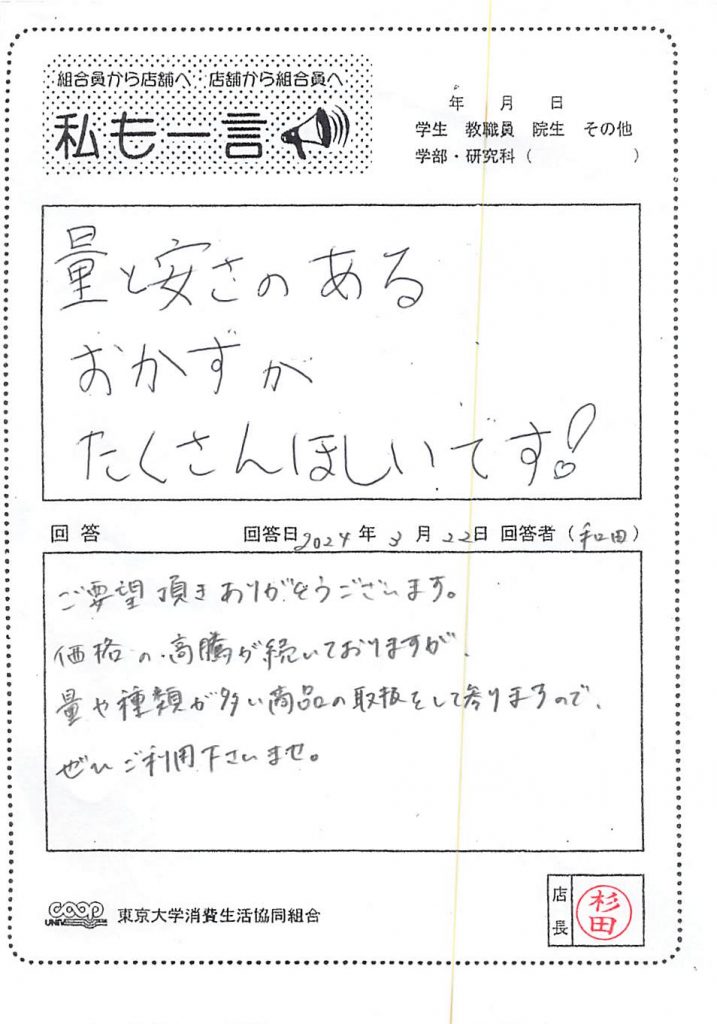 組合員から店舗へ 店舗から組合員へ
私も一言
年 月 日
学生 教職員 院生 その他
学部・研究科( )
量と安さのある
おかずが
たくさんほしいです!
回答 回答日 2024年3月22日 回答者(和田)
ご要望頂きありがとうございます。
価格の高騰が続いておりますが、
量や種類が多い商品の取扱をして参りますので、
ぜひご利用下さいませ。
UNIV. coop 東京大学消費生活協同組合
店長 杉田